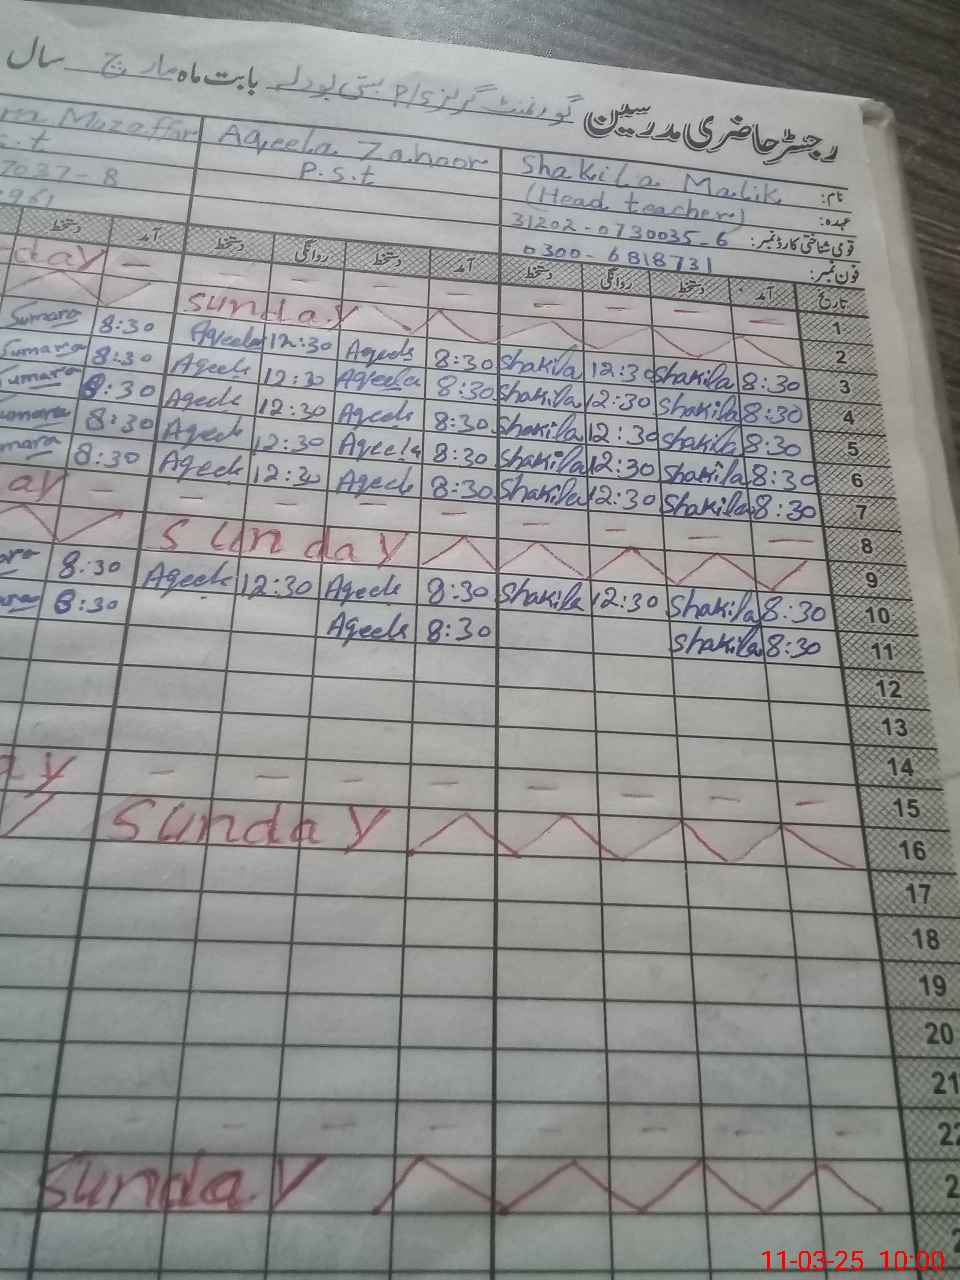 رجسٹر حاضری مدرسین گورنمنٹ گرلز P/S بستی بودلہ بابت ماہ مارچ سال
نام: Shakila Malik Aqeela Zahoor Muzaffar
عہدہ: (Head teacher) P.S.t S.t
قومی شناختی کارڈ نمبر: 31202-0730035-6 7037-8
فون نمبر: 0300-6818731 961
تاریخ آمد دستخط روانگی دستخط آمد دستخط روانگی دستخط آمد دستخط
1 — — — — — — — — — day
2 Sunday
3 8:30 Shakila 12:30 Shakila 8:30 Aqeela 12:30 Aqeela 8:30 Sumara
4 8:30 Shakila 12:30 Shakila 8:30 Aqeela 12:30 Aqeela 8:30 Sumara
5 8:30 Shakila 12:30 Shakila 8:30 Aqeela 12:30 Aqeela 8:30 umara
6 8:30 Shakila 12:30 Shakila 8:30 Aqeela 12:30 Aqeela 8:30 umara
7 8:30 Shakila 12:30 Shakila 8:30 Aqeela 12:30 Aqeela 8:30 mara
8 — — — — — — — ay
9 Sunday
10 8:30 Shakila 12:30 Shakila 8:30 Aqeela 12:30 Aqeela 8:30 ara
11 8:30 Shakila 8:30 Aqeela 8:30 ara
12
13
14
15 — — — — — — — — ay
16 Sunday
17
18
19
20
21
22 — — — — — — — —
2 Sunday
2
11-03-25 10:00